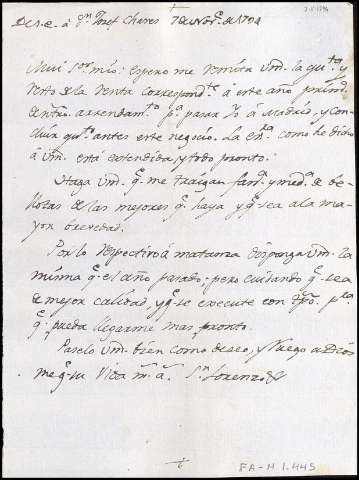 De S.E. á Dn Josef Chaves 7 de Novre. de 1794
Mui Sor mio: espero me remita Vmd. la quta. y
resto de la renta correspondte á este año primo
de ntro. arrendamto pa. pasar Yo á Madrid, y con-
cluir quto. antes este negocio. La Esra como he dicho
á Vm. está extendida, y todo pronto.
Haga Vmd. qe. me traigan fana. y meda. de be-
llotas de las mejores qe haya y qe. sea á la ma-
yor brevedad.
Por lo respectivo á matanza disponga Vm. la
misma qe. el año pasado; pero cuidando qe. sea
de mejor calidad, y qe. se execute con tpo. pa.
qe. pueda llegarme mas pronto.
Paselo Vmd. bien como deseo, y ruego á Dios
me gue. su vida ms. as. Sn. Lorenzo &
FA-M. 1.445